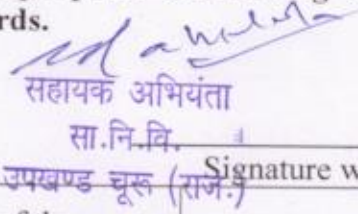 rds.
सहायक अभियंता
सा.नि.वि.
उपखण्ड चूरू (राज.)
Signature w